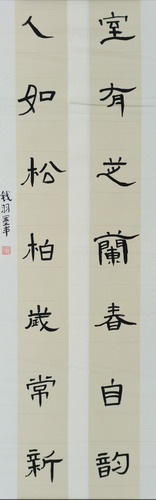 室有芝蘭春自韵
人如松柏歲常新
钱羽墨聿